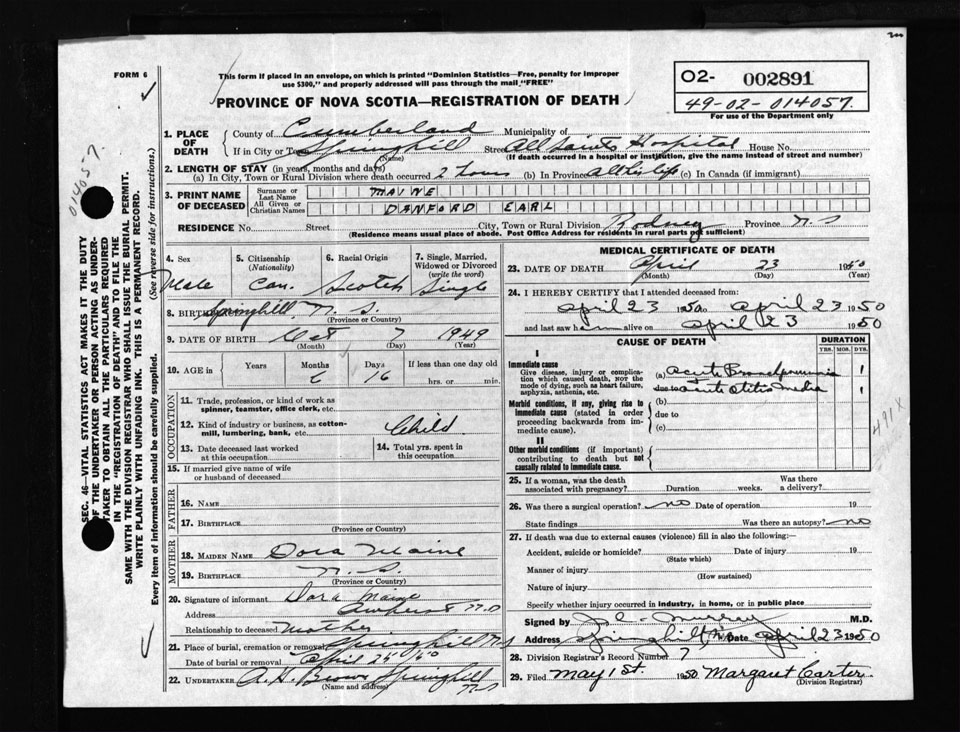 FORM 6
This form if placed in an envelope, on which is printed "Dominion Statistics—Free, penalty for improper
use $300," and properly addressed will pass through the mail "FREE"
PROVINCE OF NOVA SCOTIA—REGISTRATION OF DEATH
02- 002891
49-02-014057.
For use of the Department only
014057.
SEC. 46—VITAL STATISTICS ACT MAKES IT THE DUTY
OF THE UNDERTAKER OR PERSON ACTING AS UNDER-
TAKER TO OBTAIN ALL THE PARTICULARS REQUIRED
IN THE "REGISTRATION OF DEATH" AND TO FILE THE
SAME WITH THE DIVISION REGISTRAR WHO SHALL ISSUE THE BURIAL PERMIT.
WRITE PLAINLY WITH UNFADING INK. THIS IS A PERMANENT RECORD.
Every item of information should be carefully supplied. (See reverse side for instructions.)
1. PLACE OF DEATH
County of Cumberland Municipality of
If in City or Town Springhill Street All Saints Hospital House No.
(Name) (If death occurred in a hospital or institution, give the name instead of street and number)
2. LENGTH OF STAY (in years, months and days)
(a) In City, Town or Rural Division where death occurred 2 hours (b) In Province all his life (c) In Canada (if immigrant)
3. PRINT NAME OF DECEASED
Surname or Last Name MAINE
All Given or Christian Names DANFORD EARL
RESIDENCE No. Street City, Town or Rural Division Rodney Province N.S
(Residence means usual place of abode. Post Office Address for residents in rural parts not sufficient)
4. Sex Male
5. Citizenship (Nationality) Can.
6. Racial Origin Scotch
7. Single, Married, Widowed or Divorced (write the word) Single
8. BIRTHPLACE Springhill N. S.
(Province or Country)
9. DATE OF BIRTH Oct 7 1949
(Month) (Day) (Year)
10. AGE in Years Months 6 Days 16 If less than one day old
hrs. or min.
OCCUPATION
11. Trade, profession, or kind of work as
spinner, teamster, office clerk, etc.
12. Kind of industry or business, as cotton-
mill, lumbering, bank, etc. Child
13. Date deceased last worked
at this occupation
14. Total yrs. spent in
this occupation
15. If married give name of wife
or husband of deceased
FATHER
16. NAME
17. BIRTHPLACE
(Province or Country)
MOTHER
18. MAIDEN NAME Dora Maine
19. BIRTHPLACE N. S.
(Province or Country)
20. Signature of informant Dora Maine
Address Amherst
Relationship to deceased Mother
21. Place of burial, cremation or removal Springhill N S
Date of burial or removal April 25
22. UNDERTAKER A. H. Brown Springhill
(Name and address) N-S
MEDICAL CERTIFICATE OF DEATH
23. DATE OF DEATH April 23 19
(Month) (Day) (Year)
24. I HEREBY CERTIFY that I attended deceased from:
April 23 1950 to April 23 1950
and last saw him alive on April 23 1950
CAUSE OF DEATH DURATION
YRS. MOS. DYS.
I
Immediate cause
Give disease, injury or complica-
tion which caused death, NOT the
mode of dying, such as heart failure,
asphyxia, asthenia, etc.
(a) Acute Bronchopneumonia 1
due to Acute Otitis Media 1
Morbid conditions, if any, giving rise to
immediate cause (stated in order
proceeding backwards from im-
mediate cause).
(b)
due to
(c)
491X
II
Other morbid conditions (if important)
contributing to death but not
causally related to immediate cause.
25. If a woman, was the death
associated with pregnancy? Duration weeks. Was there
a delivery?
26. Was there a surgical operation? no Date of operation 19
State findings Was there an autopsy? no
27. If death was due to external causes (violence) fill in also the following:—
Accident, suicide or homicide? Date of injury 19
(State which)
Manner of injury
(How sustained)
Nature of injury
Specify whether injury occurred in industry, in home, or in public place
Signed by M.D.
Address Springhill Date April 23 1950
28. Division Registrar's Record Number 7
29. Filed May 1st. 1950 Margaret Carter.
(Division Registrar)